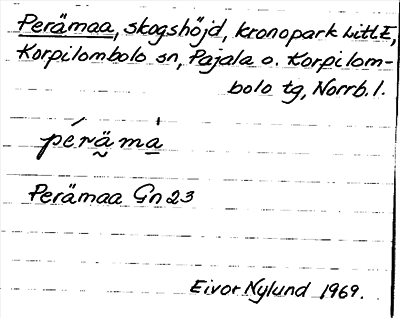 Perämaa, skogshöjd, kronopark Litt.E,
Korpilombolo sn, Pajala o. Korpilom-
bolo tg, Norrb. l.
pérä̰mà̱
Perämaa Gn 23
Eivor Nylund 1969.